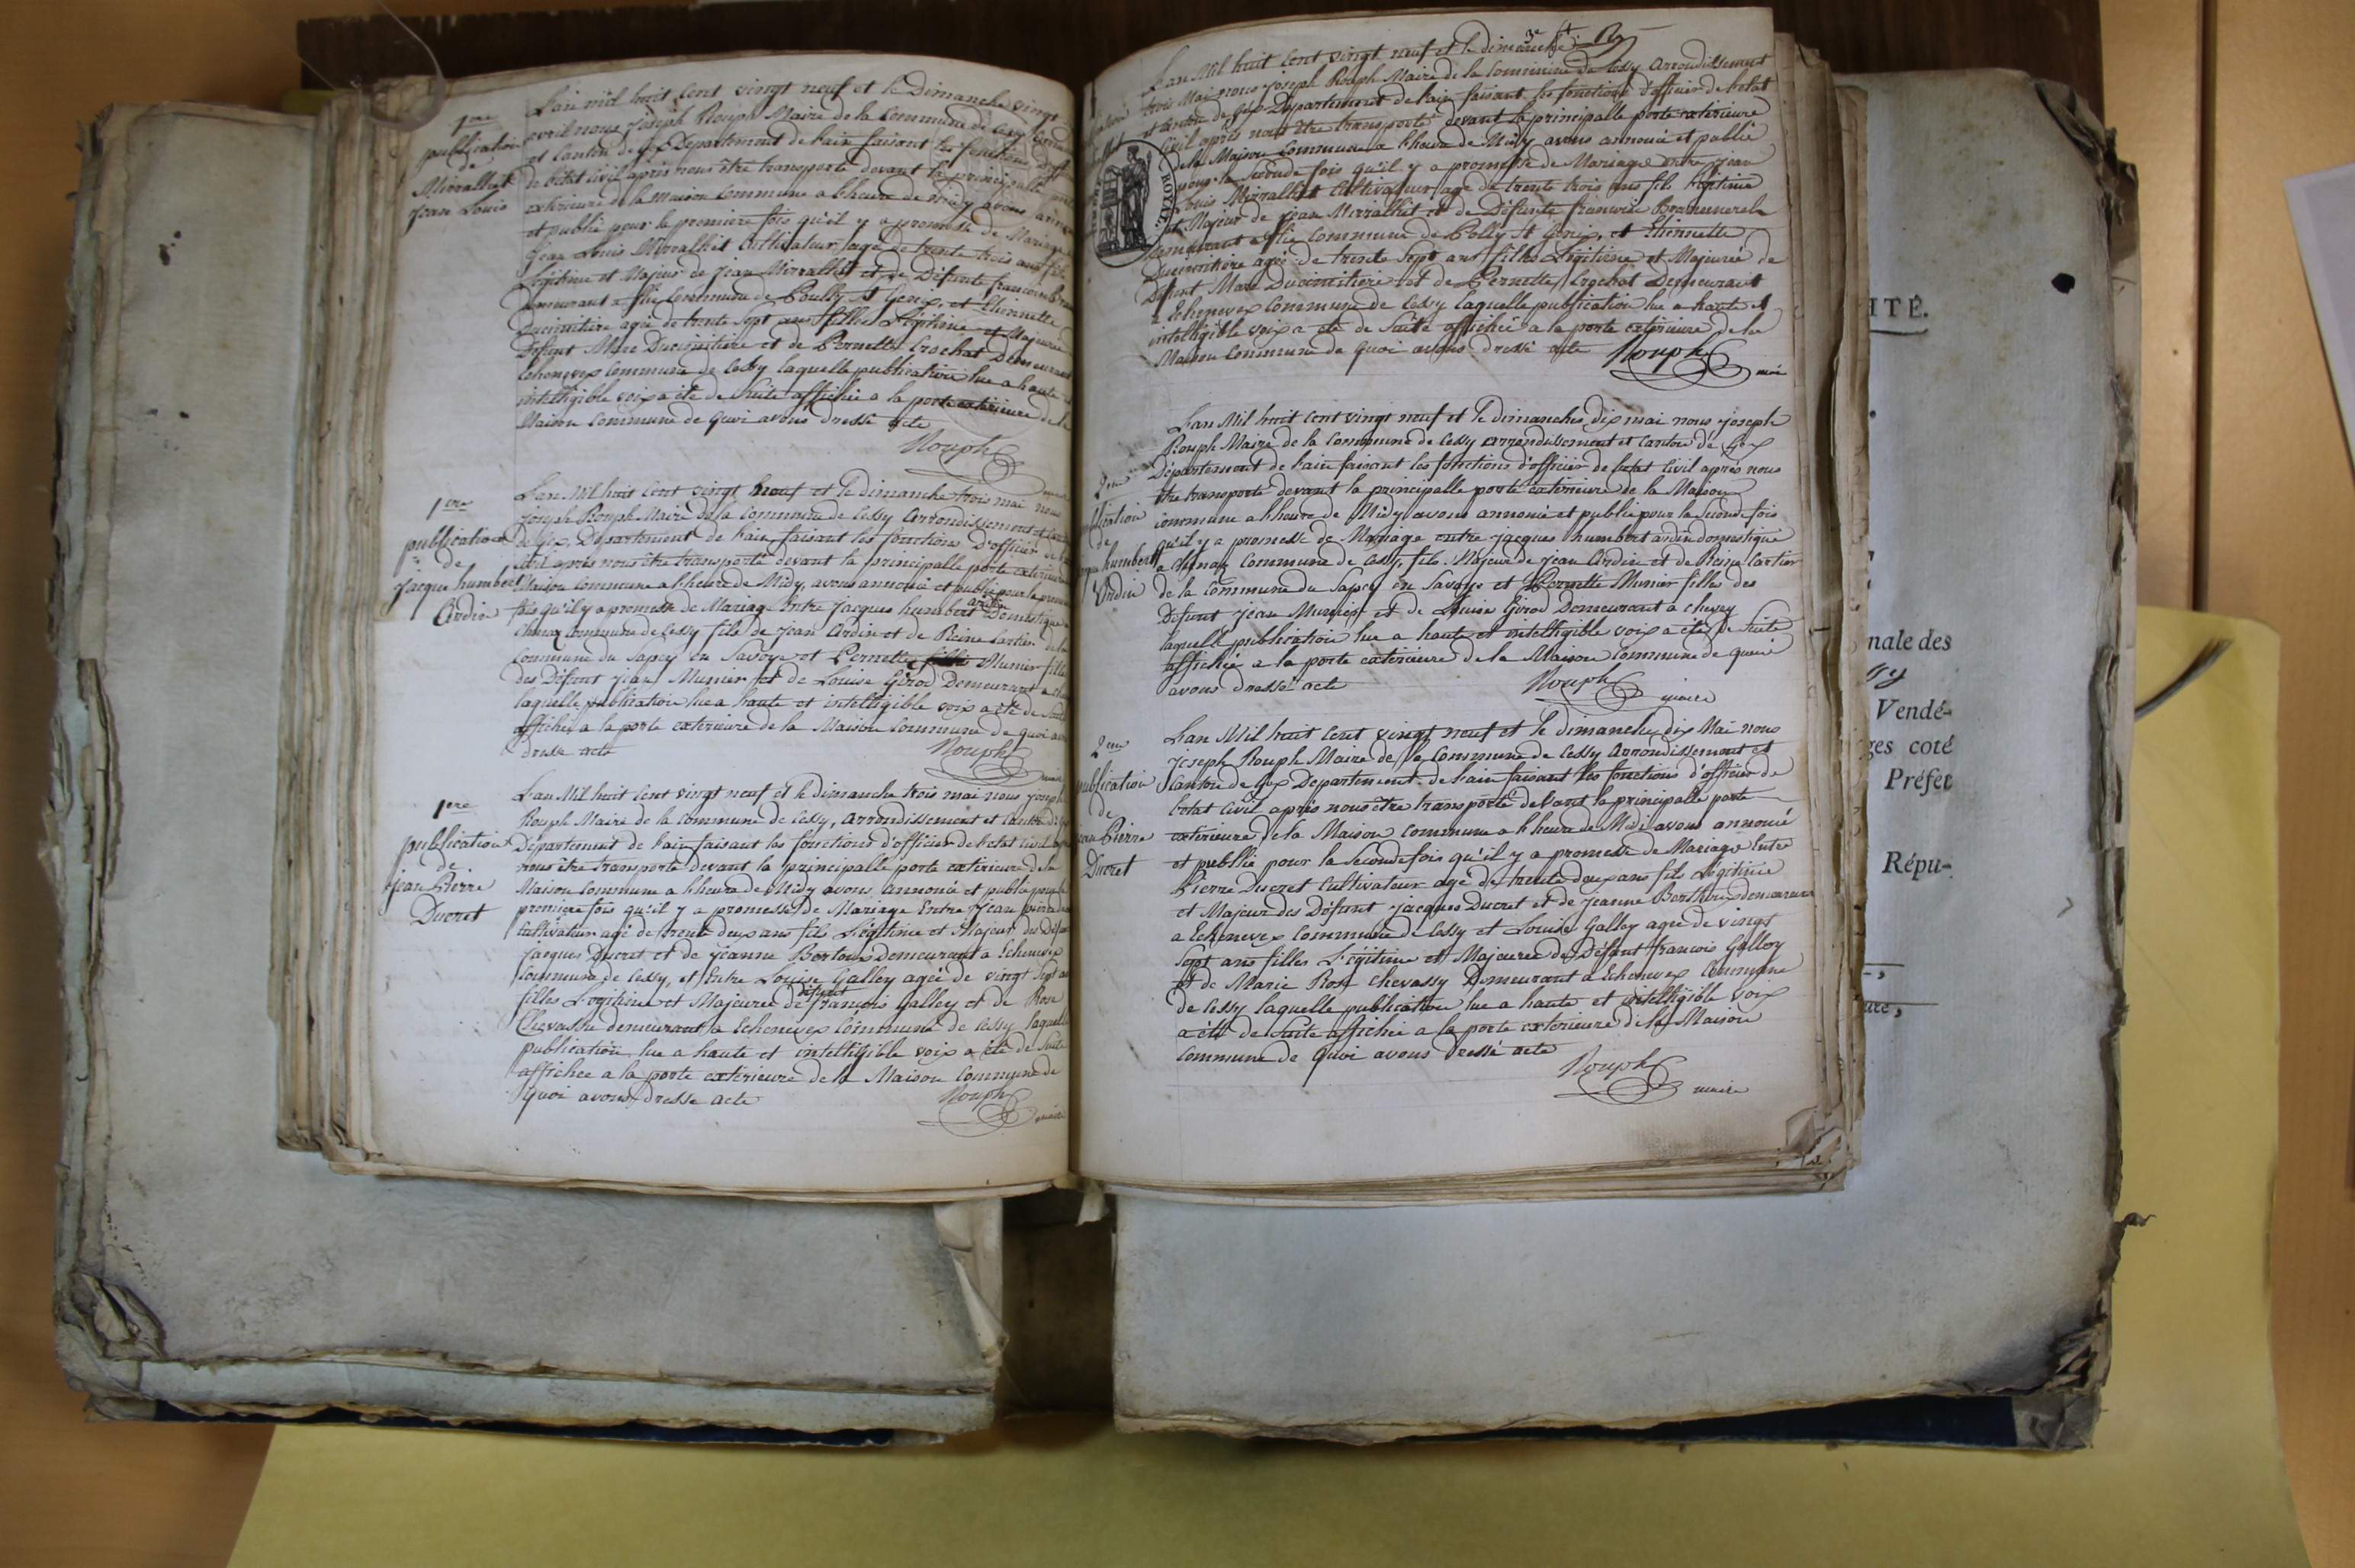 1ere
publication
de
Mirralhet
Jean Louis
L'an mil huit cent vingt neuf et le Dimanche vingt
avril nous Joseph Rouph Maire de la Commune de Cessy
et Canton de Gex Departement de l'ain faisant les fonctions
de l'etat Civil après nous être transporté devant la principalle
exterieure de la Maison Commune a l'heure de midy avons
et publié pour la premiere fois qu'il y a promesse de Mariage
Jean Louis Mirralhet Cultivateur agé de trente trois ans fils
Légitime et Majeur de Jean Mirralhet et de Défunte francoise
Demeurant a flie Commune de Poully St Genix, et Ethiennette
Ducimitiere agée de trente sept ans filles Légitime et Majeure
Défunt Marc Ducimitiere et de Pernette Crochat Demeurant
Echenevex Commune de Cessy laquelle publication lue a haute
intelligible voix a été de suite affichée a la porte extérieure de la
Maison Commune de quoi avons dressé acte
Rouph
1ere
publication
de
jacque humbert
Ardin
L'an Mil huit Cent vingt neuf et le dimanche trois mai nous
joseph Rouph Maire de la Commune de Cessy Arrondissement et
de Gex, Département de l'ain faisant les fonctions d'officier de
civil après nous être transporté devant la principalle porte extérieure
Maison Commune a l'heure de Midy, avons annoncé et publié pour la
fois qu'il y a promesse de Mariage Entre jacques humbert ardin Domestique
chenaz Commune de Cessy fils de jean Ardin et de Reine Cartier de la
Commune du Sapey en Savoye et Pernette Munier fille
des Défunt jean Munier et de Louise Girod Demeurant a
laquelle publication lue a haute et intelligible voix a été de suite
affichée a la porte exterieure de la Maison Commune de quoi
dressé acte
Rouph
1ere
publication
de
jean Pierre
Ducret
L'an Mil huit Cent vingt neuf et le dimanche trois mai nous joseph
Rouph Maire de la Commune de Cessy, arrondissement et Canton de
Département de l'ain faisant les fonctions d'officier de l'etat civil
nous être transporté devant la principalle porte extérieure de la
Maison Commune a l'heure de Midy avons annoncé et publié pour la
premiere fois qu'il y a promesse de Mariage Entre jean pierre
Cultivateur agé de trente deux ans fils Légitime et Majeur des Défunt
jacques Ducret et de jeanne Bertoux Demeurant a Echenevex
Commune de Cessy, et Entre Louise Galley agée de vingt sept ans
filles Légitime et Majeure de défunt françois Galley et de Rose
Chevassu demeurant a Echenevex Commune de Cessy laquelle
publication lue a haute et intelligible voix a été de suite
affichée a la porte extérieure de la Maison Commune de
quoi avons dressé acte
Rouph
maire
3e
L'an Mil huit Cent vingt neuf et le dimanche
trois Mai nous joseph Rouph Maire de la Commune de Cessy Arrondissement
et Canton de Gex Département de l'ain faisant les fonctions d'officier de l'etat
Civil après nous être transporté devant la principalle porte extérieure
de la Maison Commune a l'heure de Midy avons annoncé et publié
pour la seconde fois qu'il y a promesse de Mariage entre jean
Louis Mirralhet Cultivateur agé de trente trois ans fils Légitime
et Majeur de jean Mirralhet et de Défunte francoise
Demeurant a flie Commune de Polly St Genix, et Ethiennette
Ducimitiere agée de trente sept ans filles Légitime et Majeure de
Défunt Marc Ducimitiere et de Pernette Crochat Demeurant
a Echenevex Commune de Cessy laquelle publication lue a haute et
intelligible voix a été de suite affichée a la porte extérieure de la
Maison Commune de quoi avons dressé acte
Rouph
ROYAL
2eme
de
humbert
Ardin
L'an Mil huit Cent vingt neuf et le dimanches dix mai nous joseph
Rouph Maire de la Commune de Cessy arrondissement et Canton de Gex
Département de l'ain faisant les fonctions d'officier de l'etat Civil après nous
être transporté devant la principalle porte extérieure de la Maison
commune a l'heure de Midy avons annoncé et publié pour la seconde fois
qu'il y a promesse de Mariage entre jacques humbert ardin domestique
a chenaz Commune de Cessy, fils Majeur de jean Ardin et de Reine Cartier
de la Commune du Sapey en Savoye et Pernette Munier filles des
Défunt jean Munier et de Louise Girod Demeurant a chevry
laquelle publication lue a haute et intelligible voix a été de suite
affichée a la porte extérieure de la Maison Commune de quoi
avons dressé acte
Rouph
maire
2eme
publication
de
jean Pierre
Ducret
L'an Mil huit Cent vingt neuf et le dimanche dix Mai nous
joseph Rouph Maire de la Commune de Cessy Arrondissement et
Canton de Gex Departement de l'ain faisant les fonctions d'officier de
l'etat Civil après nous être transporté devant la principalle porte
extérieure de la Maison Commune a l'heure de Midi avons annoncé
et publié pour la seconde fois qu'il y a promesse de Mariage Entre
Pierre Ducret Cultivateur agé de trente deux ans fils Légitime
et Majeur des Défunt jacques Ducret et de jeanne Berthoux demeurant
a Echenevex Commune de Cessy et Louise Galley agée de vingt
sept ans filles Légitime et Majeure de Défunt francois Galley
et de Marie Rose Chevassy Demeurant a Echenevex Commune
de Cessy laquelle publication lue a haute et intelligible voix
a été de suite affichée a la porte extérieure de la Maison
Commune de quoi avons dressé acte
Rouph
maire
ITÉ.
nale des
Vendé-
ges coté
Préfet
Répu-